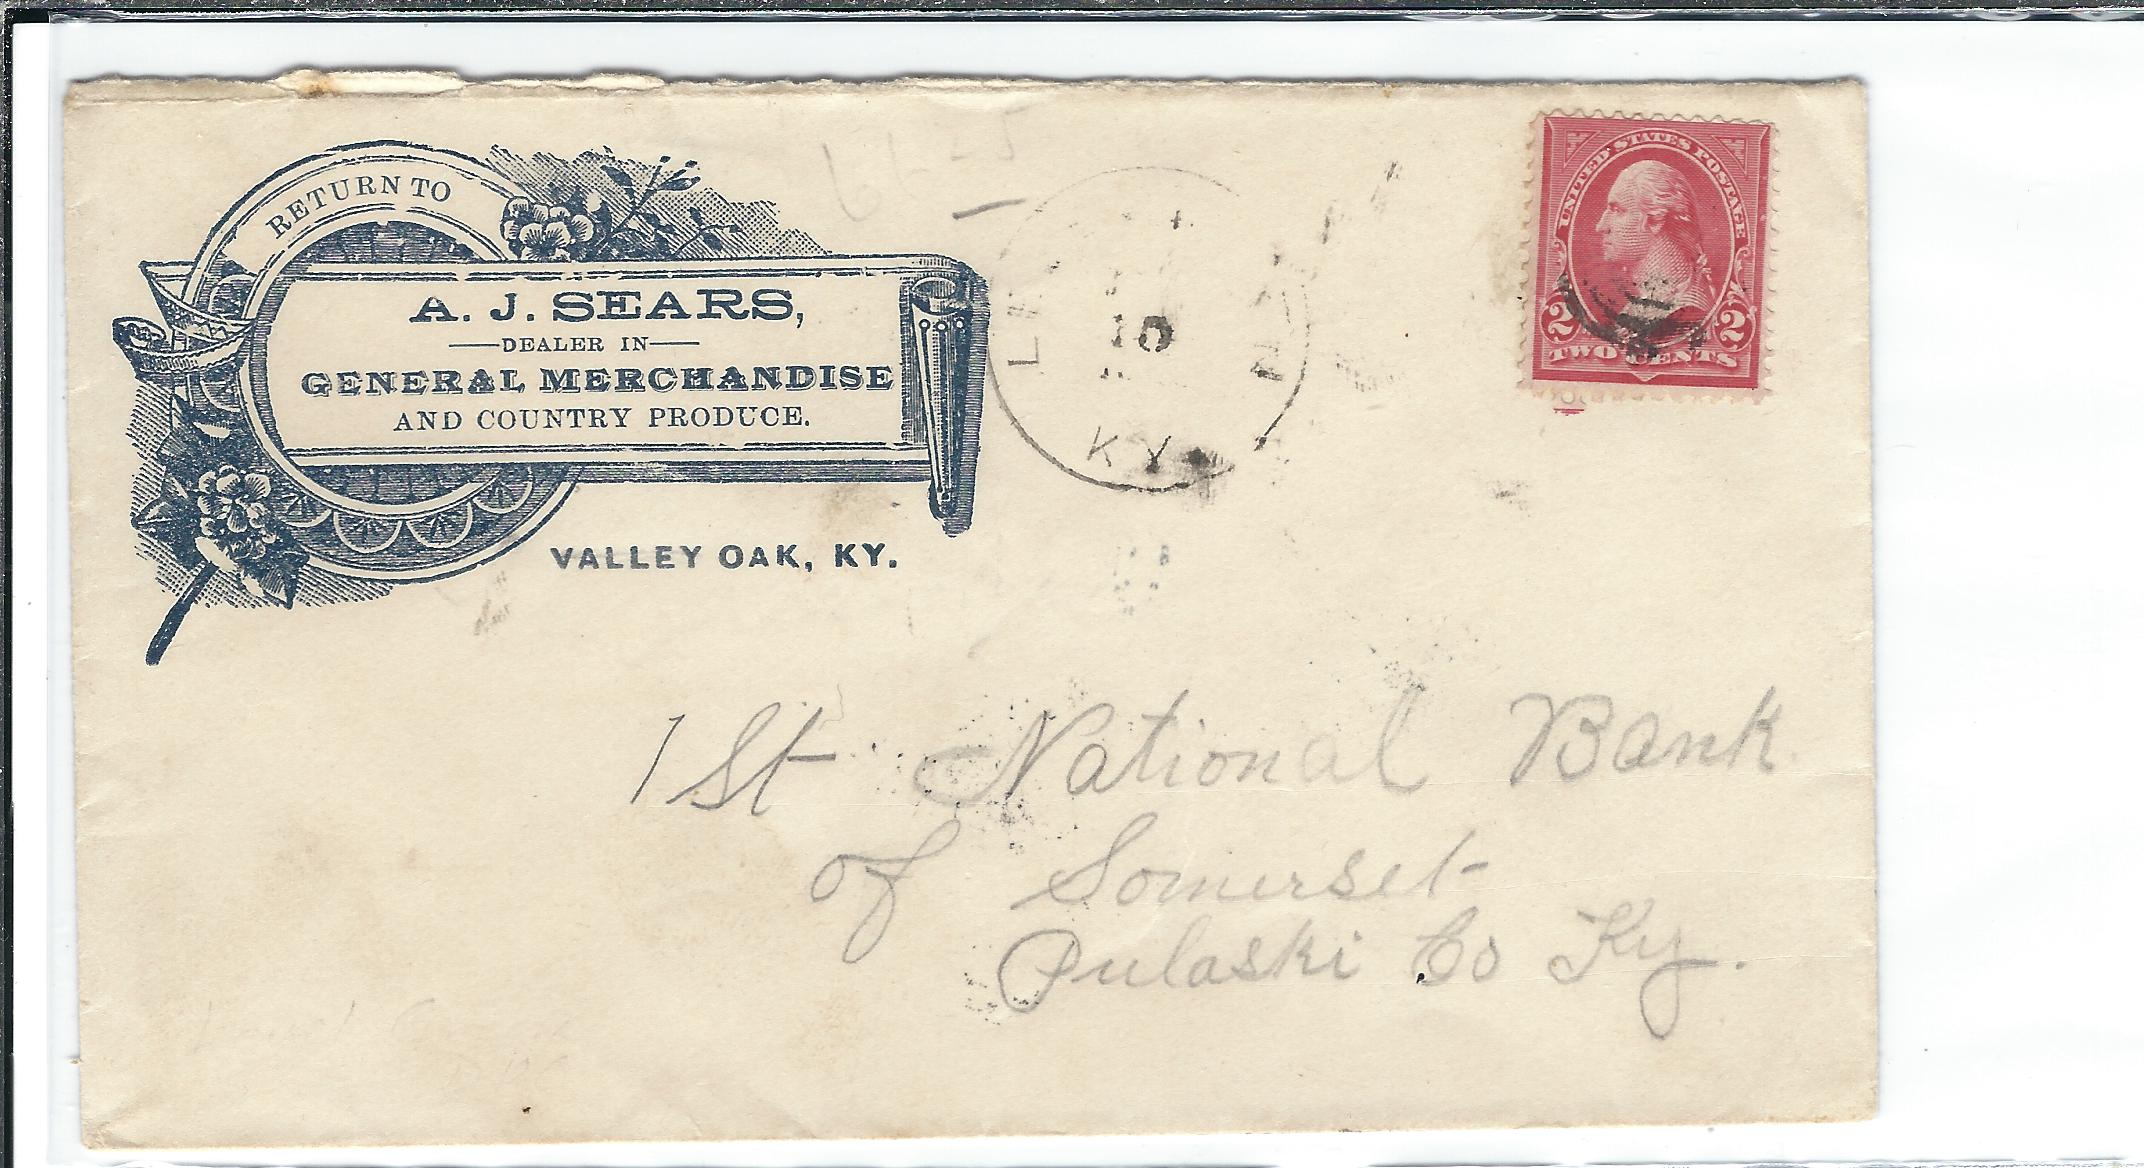 RETURN TO
A. J. SEARS,
DEALER IN
GENERAL MERCHANDISE
AND COUNTRY PRODUCE.
VALLEY OAK, KY.
10
KY.
UNITED STATES POSTAGE
2 2
TWO CENTS
1st National Bank
of Somerset
Pulaski Co Ky.